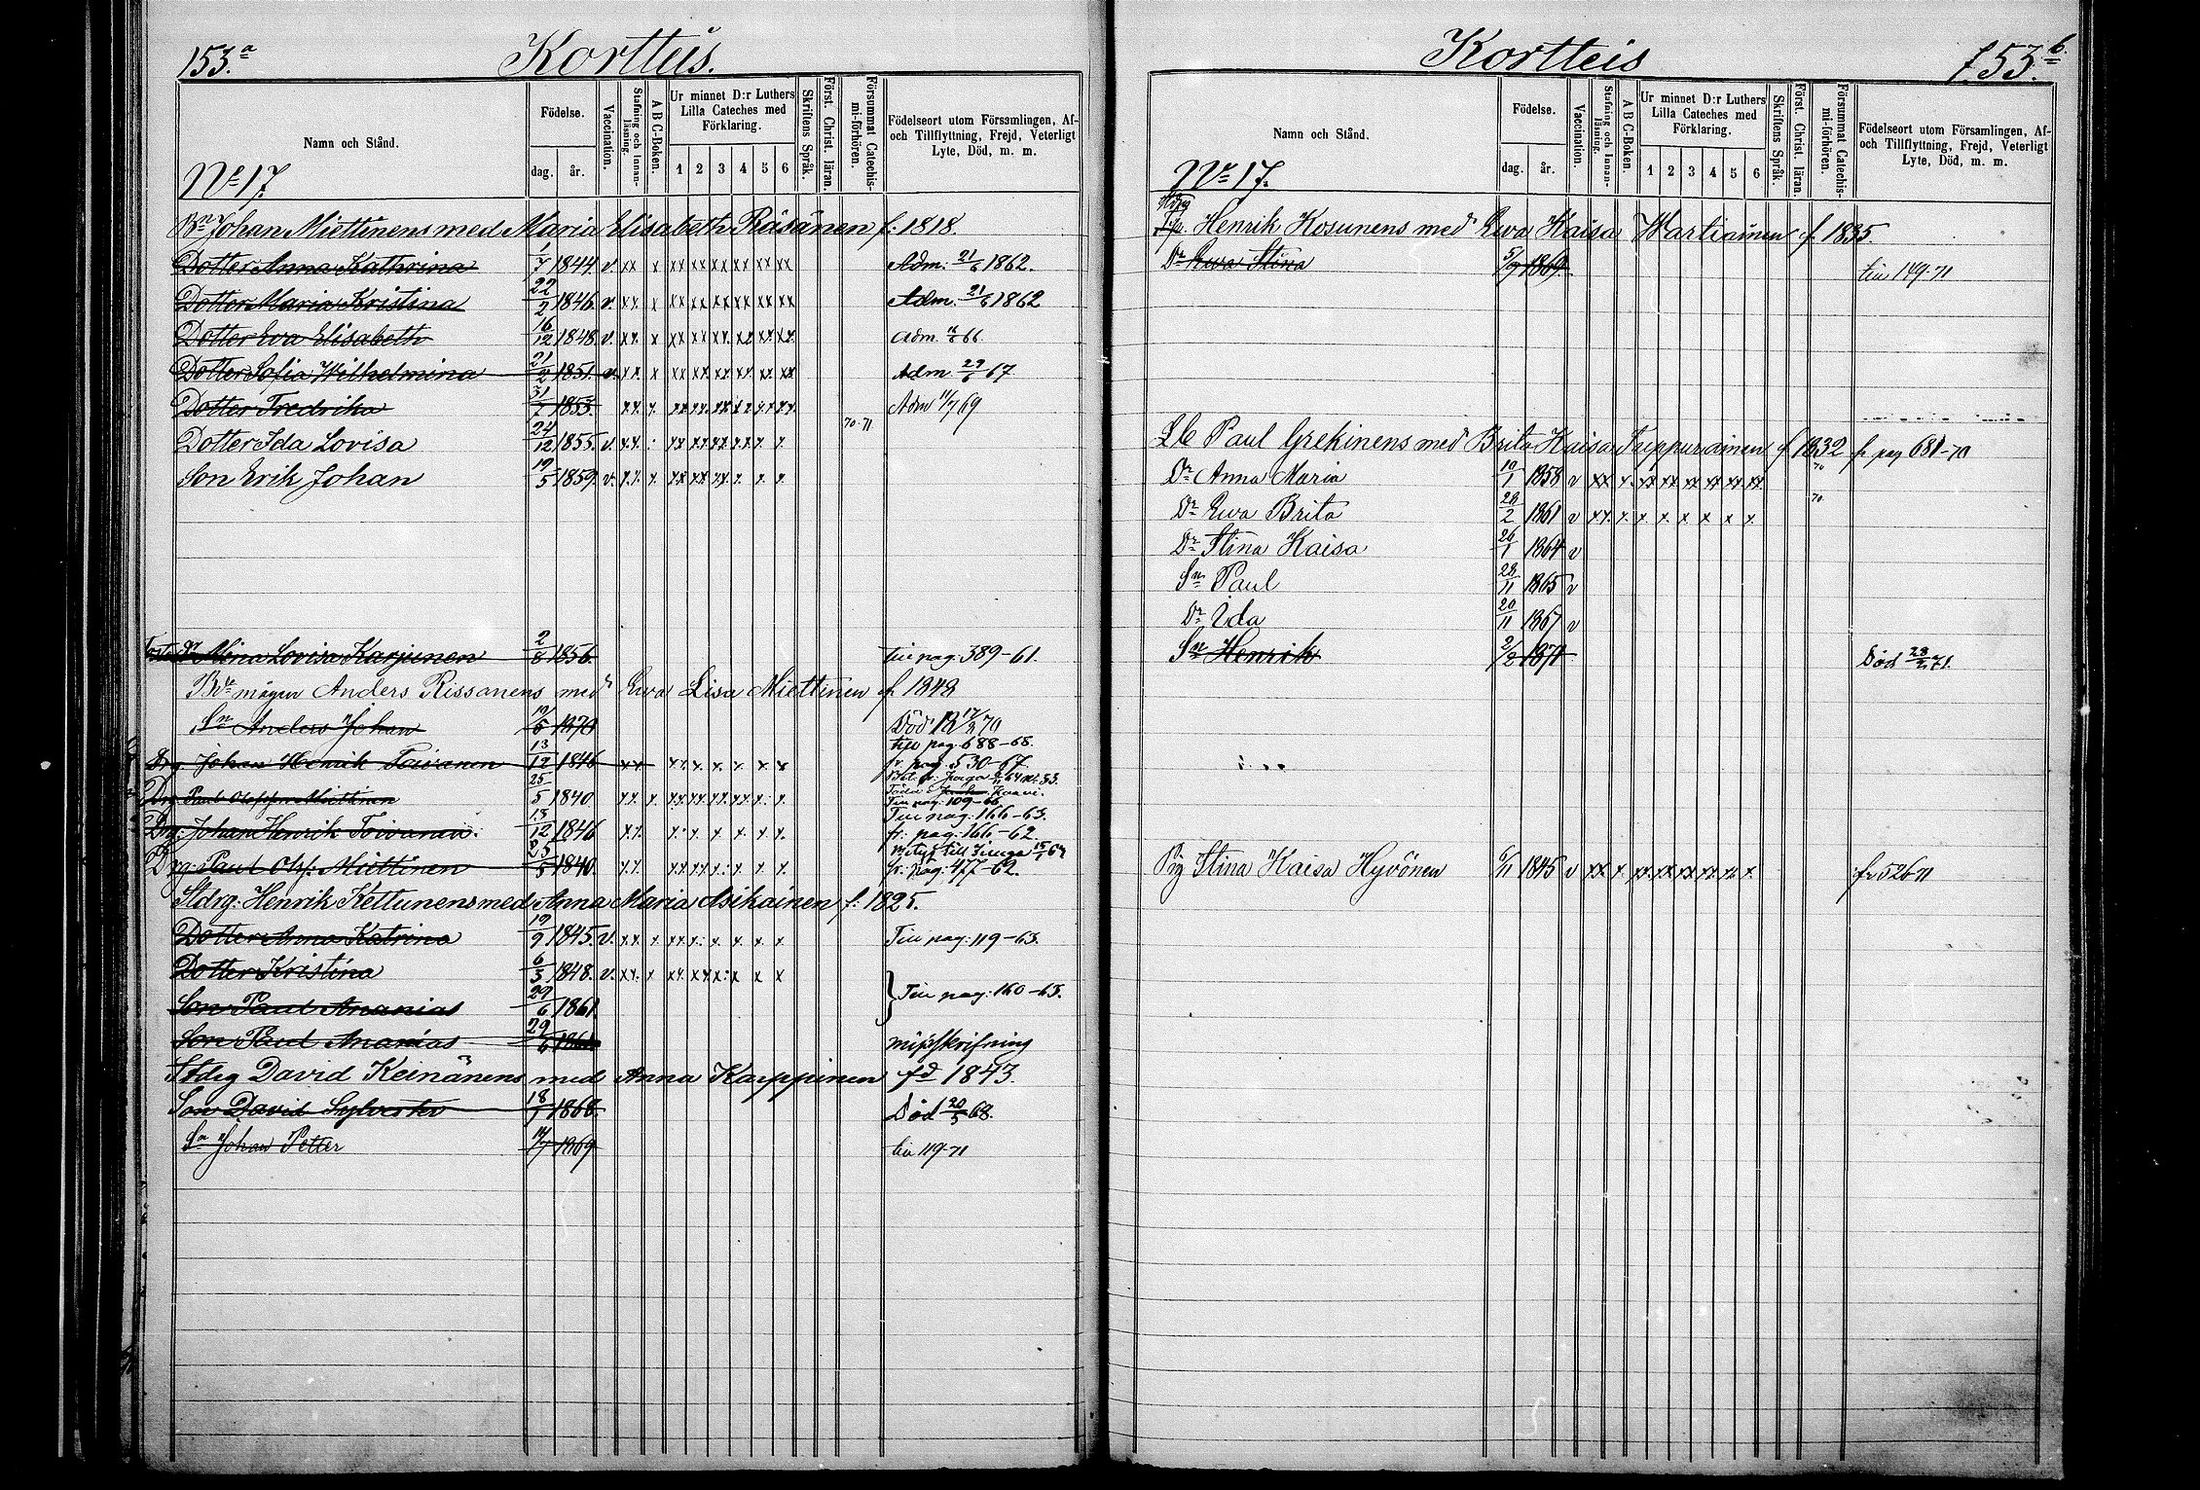 153.a
Korttūs.
Namn och Stånd.
Födelse.
dag. år.
Vaccination.
Stafning och Innanläsning.
A B C-Boken.
Ur minnet D:r Luthers Lilla Cateches med Förklaring.
1 2 3 4 5 6
Skriftens Språk.
Först. Christ. läran.
Försummat Catechismi-förhören.
Födelseort utom Församlingen, Af- och Tillflyttning, Frejd, Veterligt Lyte, Död, m. m.
No 17.
Bn Johan Miettinens med Maria Elisabeth Räsänen f. 1818.
Dotter Anna Kathrina 1/7 1844 v. xx x xx xx xx xx xx xx Adm. 21/6 1862.
Dotter Maria Kristina 22/2 1846 v. xx x xx xx xx xx xx xx Adm. 21/6 1862
Dotter Eva Elisabeth 16/12 1848 v. xx x xx xx xx xx xx xx Adm. 66.
Dotter Sofia Wilhelmina 21/2 1851 v. xx x xx xx xx xx xx xx Adm. 29/6 67.
Dotter Fredrika 31/7 1853 xx x xx xx xx xx xx xx Adm 11/7 69
Dotter Ida Lovisa 24/12 1855 v. xx 70-71
Son Erik Johan 19/5 1859 v. xx x xx xx xx x x x
Mina Lovisa Karjunen 2/8 1856 till pag: 389-61.
mågen Anders Rissanens med Ewa Lisa Miettinen f 1848
Sn Anders Johan 19/5 1870 Död 70
till pag. 688-68.
Drg. Johan Henrik Toivanen 13/12 1846 fr. pag. 530-67.
Drg Paul Miettinen 25/5 1840
Till pag: 109-66
Till pag: 166-63.
Drg: Johan Henrik Toivanen 13/12 1846 fr: pag: 166-62.
Drg: Paul Olof Miettinen 25/5 1840 fr. pag: 477-62.
Stdrg: Henrik Kettunens med Anna Maria Asikainen f. 1825.
Dotter Anna Katrina 19/9 1845 v. xx x Till pag: 119-63.
Dotter Kristina 6/5 1848 v. xx x
Son Paul Ananias 29/6 1861 } Till pag: 160-63.
Son Paul Ananias 29/6 1861 misskrifning
Stdrg David Keinänens med Anna Karppinen fd 1843.
Son David Sylvester 18/1 1868 Död 20/5 68.
Sn Johan Petter 14/7 1869 till 119-71
Kortteis
153.b
Namn och Stånd.
Födelse.
dag. år.
Vaccination.
Stafning och Innanläsning.
A B C-Boken.
Ur minnet D:r Luthers Lilla Cateches med Förklaring.
1 2 3 4 5 6
Skriftens Språk.
Först. Christ. läran.
Försummat Catechismi-förhören.
Födelseort utom Församlingen, Af- och Tillflyttning, Frejd, Veterligt Lyte, Död, m. m.
No 17.
Henrik Kosunens med Ewa Kaisa Wartiainen f. 1835.
Dr Ewa Stina 5/9 1869 till 149-71
Lb Paul Grekinens med Brita Kaisa Tuppurainen f 1832 fr pag 681-70
Dr Anna Maria 10/1 1858 v xx x xx xx xx xx xx xx 70
Dr Ewa Brita 28/2 1861 v xx x x x x x x x 70
Dr Stina Kaisa 26/1 1864 v
Sn Paul 28/11 1865 v
Dr Ida 20/11 1867 v
Sn Henrik 2/2 1871 Död 71.
Pig Stina Kaisa Hyvönen 6/11 1845 v xx x xx xx xx xx xx x fr 526 71